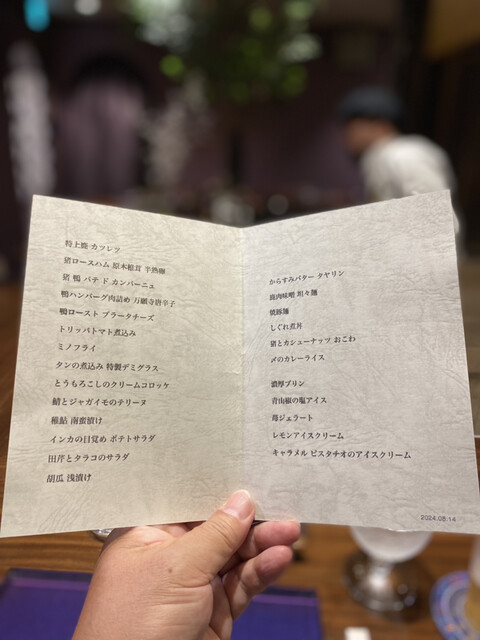 特上鹿 カツレツ
猪ロースハム 原木椎茸 半熟卵
猪 鴨 パテ ド カンパーニュ
鴨ハンバーグ肉詰め 万願寺唐辛子
鴨ロースト ブラータチーズ
トリッパトマト煮込み
ミノフライ
タンの煮込み 特製デミグラス
とうもろこしのクリームコロッケ
鯖とジャガイモのテリーヌ
稚鮎 南蛮漬け
インカの目覚め ポテトサラダ
田芹とタラコのサラダ
胡瓜 浅漬け
からすみバター タヤリン
鹿肉味噌 坦々麺
焼豚麺
しぐれ煮丼
猪とカシューナッツ おこわ
〆のカレーライス
濃厚プリン
青山椒の塩アイス
苺ジェラート
レモンアイスクリーム
キャラメル ピスタチオのアイスクリーム
2024.08.14